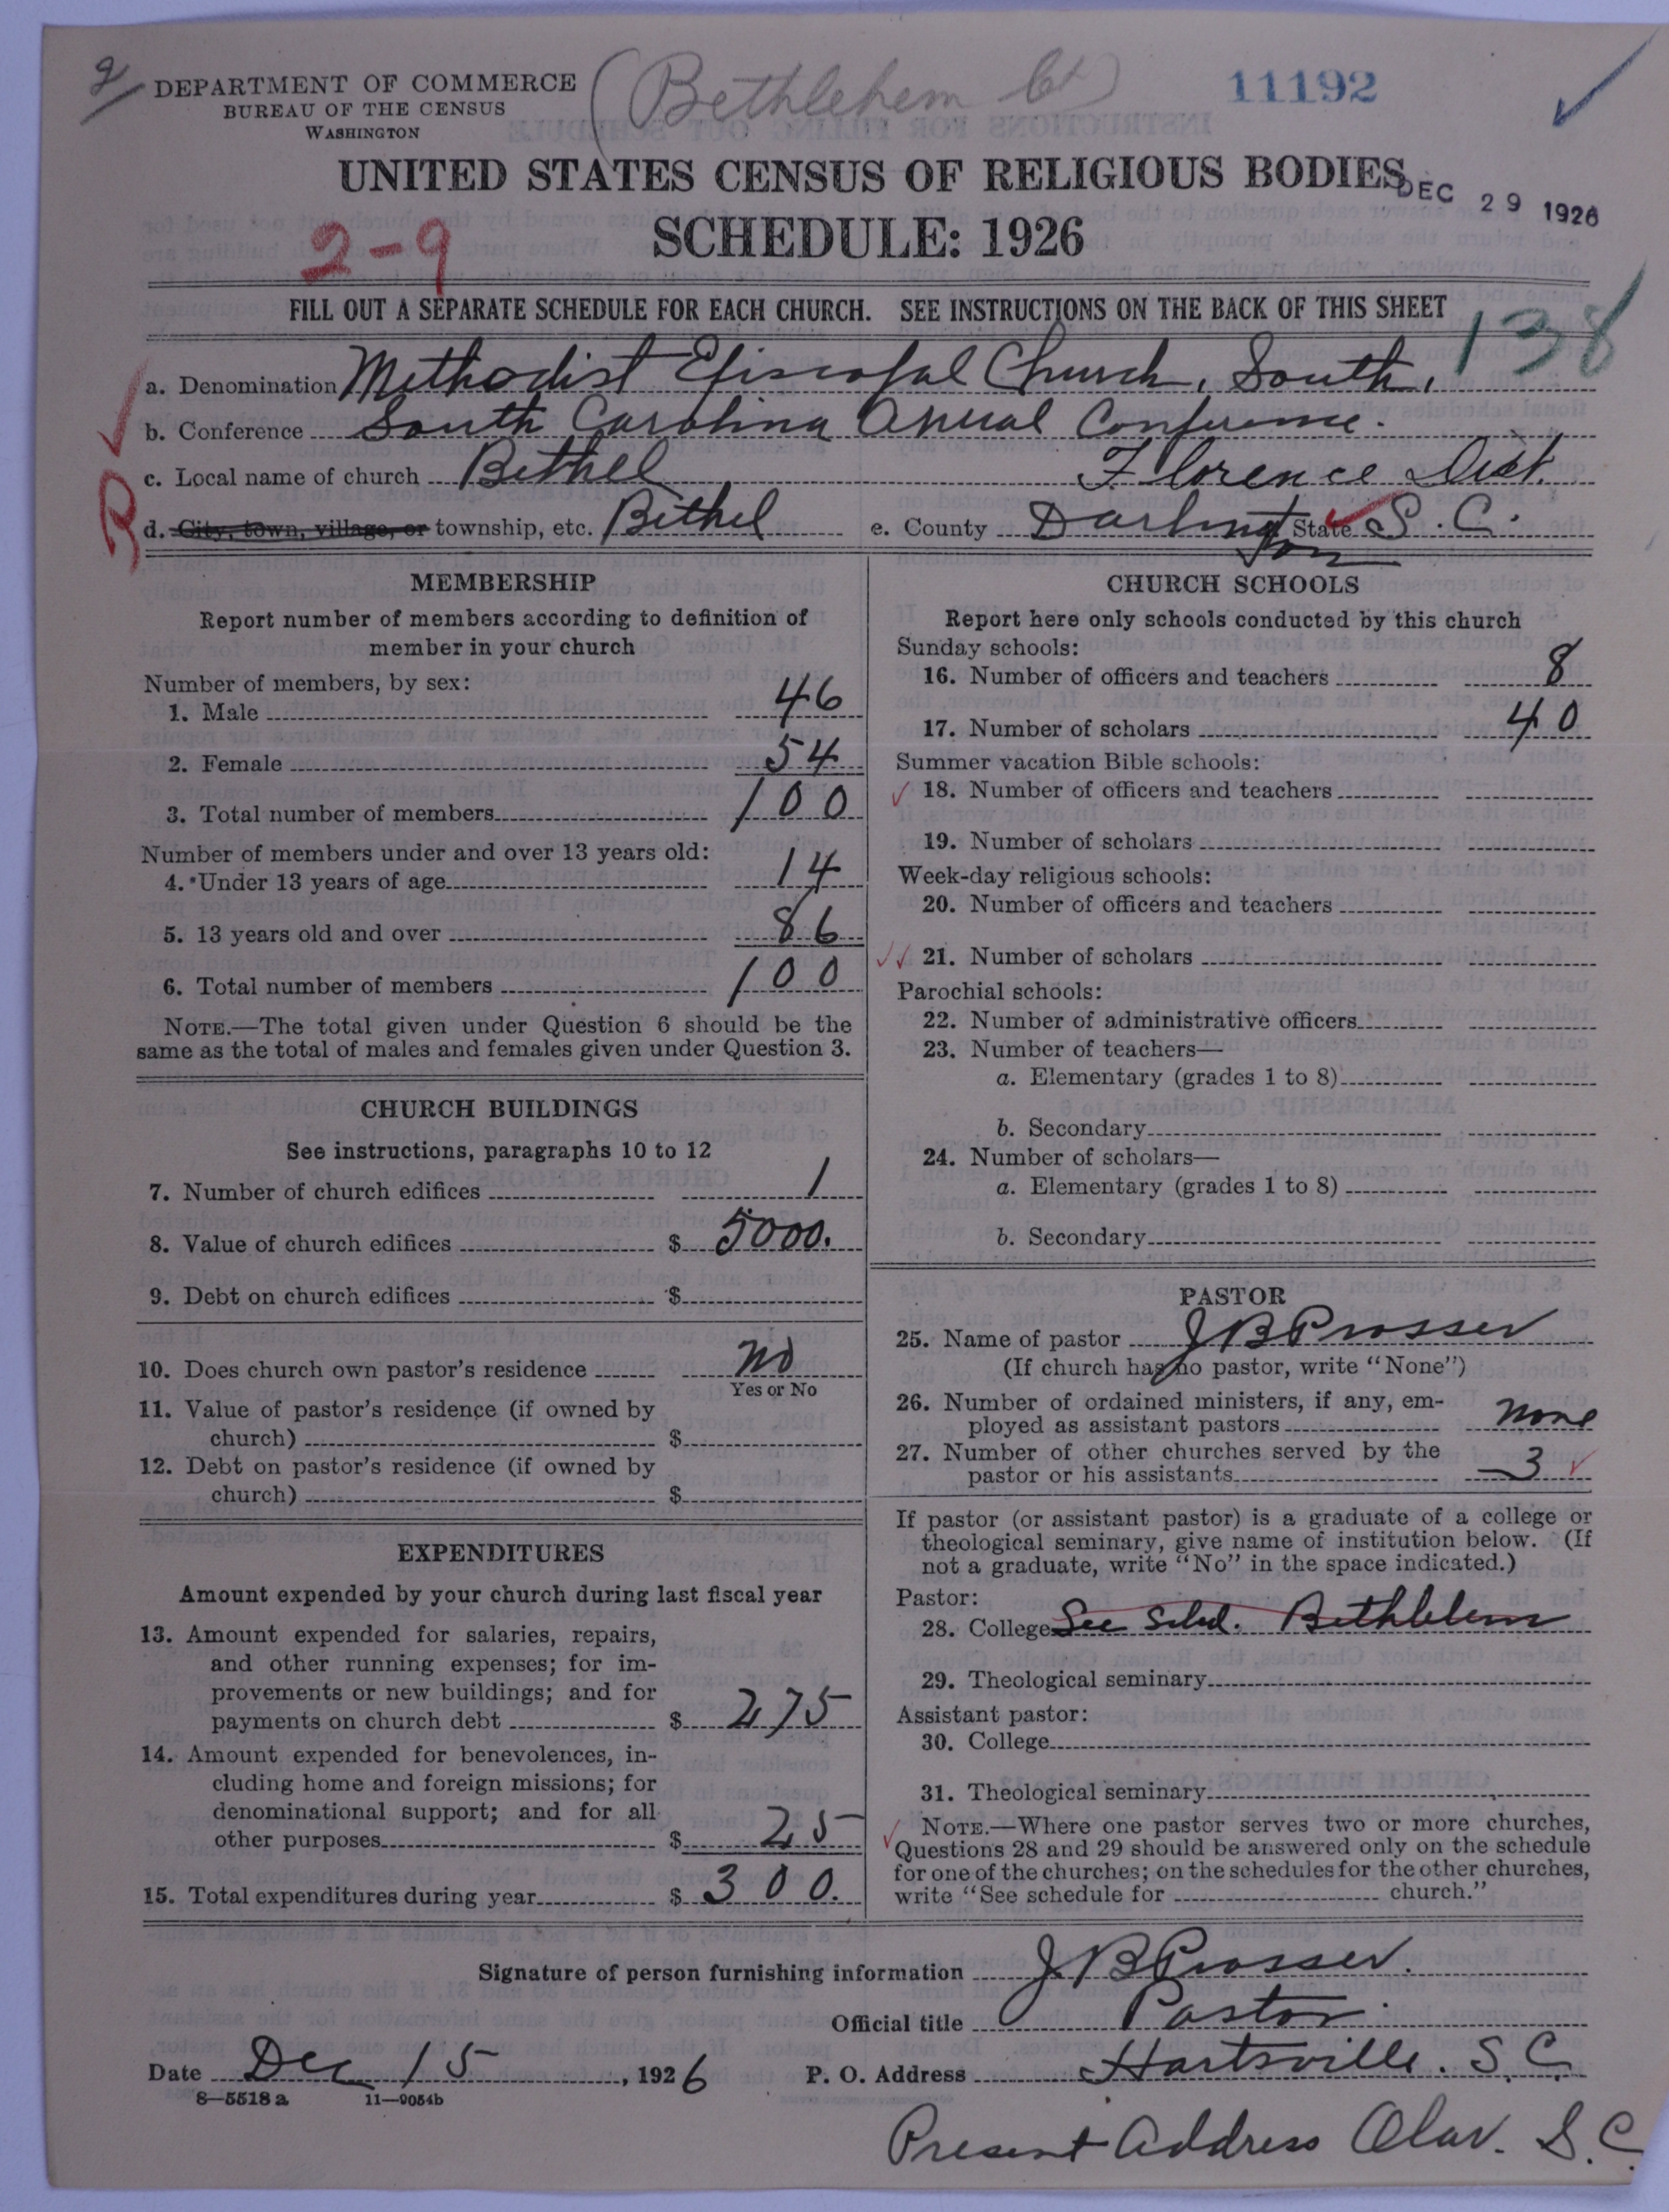 2/
DEPARTMENT OF COMMERCE
BUREAU OF THE CENSUS
WASHINGTON
(Bethlehem Ct)
11192
UNITED STATES CENSUS OF RELIGIOUS BODIES
DEC 29 1926
2-9
SCHEDULE: 1926
FILL OUT A SEPARATE SCHEDULE FOR EACH CHURCH. SEE INSTRUCTIONS ON THE BACK OF THIS SHEET
138
a. Denomination Methodist Episcopal Church, South,
b. Conference South Carolina Annual Conference.
c. Local name of church Bethel Florence Dist.
R
d. City, town, village, or township, etc. Bethel e. County Darlington State S. C.
MEMBERSHIP
Report number of members according to definition of
member in your church
Number of members, by sex:
1. Male 46
2. Female 54
3. Total number of members 100
Number of members under and over 13 years old:
4. Under 13 years of age 14
5. 13 years old and over 86
6. Total number of members 100
NOTE.—The total given under Question 6 should be the
same as the total of males and females given under Question 3.
CHURCH BUILDINGS
See instructions, paragraphs 10 to 12
7. Number of church edifices 1
8. Value of church edifices $ 5000.
9. Debt on church edifices $
10. Does church own pastor's residence no
Yes or No
11. Value of pastor's residence (if owned by
church) $
12. Debt on pastor's residence (if owned by
church) $
EXPENDITURES
Amount expended by your church during last fiscal year
13. Amount expended for salaries, repairs,
and other running expenses; for im-
provements or new buildings; and for
payments on church debt $ 275
14. Amount expended for benevolences, in-
cluding home and foreign missions; for
denominational support; and for all
other purposes $ 25
15. Total expenditures during year $ 300.
CHURCH SCHOOLS
Report here only schools conducted by this church
Sunday schools:
16. Number of officers and teachers 8
17. Number of scholars 40
Summer vacation Bible schools:
18. Number of officers and teachers
19. Number of scholars
Week-day religious schools:
20. Number of officers and teachers
21. Number of scholars
Parochial schools:
22. Number of administrative officers
23. Number of teachers—
a. Elementary (grades 1 to 8)
b. Secondary
24. Number of scholars—
a. Elementary (grades 1 to 8)
b. Secondary
PASTOR
25. Name of pastor J B Prosser
(If church has no pastor, write "None")
26. Number of ordained ministers, if any, em-
ployed as assistant pastors none
27. Number of other churches served by the
pastor or his assistants 3
If pastor (or assistant pastor) is a graduate of a college or
theological seminary, give name of institution below. (If
not a graduate, write "No" in the space indicated.)
Pastor:
28. College See Sched. Bethlehem
29. Theological seminary
Assistant pastor:
30. College
31. Theological seminary
NOTE.—Where one pastor serves two or more churches,
Questions 28 and 29 should be answered only on the schedule
for one of the churches; on the schedules for the other churches,
write "See schedule for church."
Signature of person furnishing information J B Prosser.
Official title Pastor.
Date Dec 15, 1926 P. O. Address Hartsville. S. C.
8—5518 a 11—9054b
Present Address Olar. S. C.